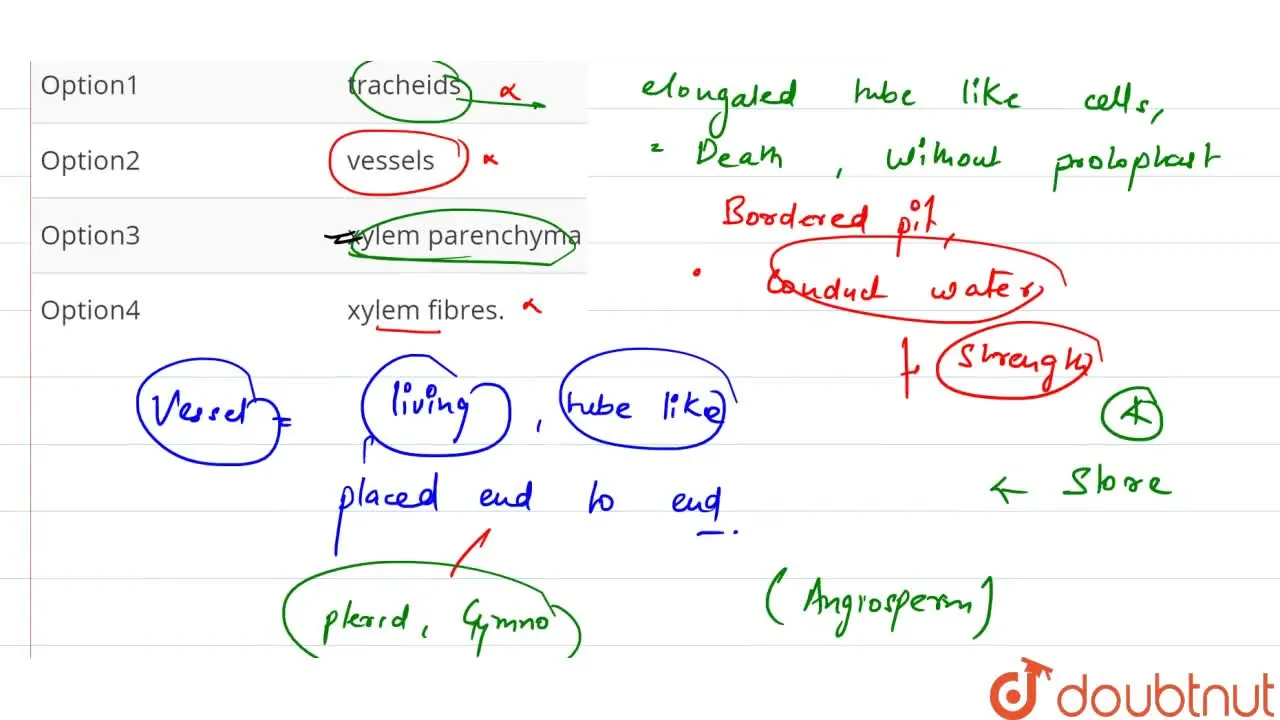 Option1 tracheids α
Option2 vessels α
Option3 xylem parenchyma
Option4 xylem fibres. α
elongated tube like cells,
= Death, without protoplast
Bordered pit,
Conduct water,
+ Strength
Vessel = living, tube like
placed end to end.
← Store
pterid, Gymno
(Angiosperm)
doubtnut